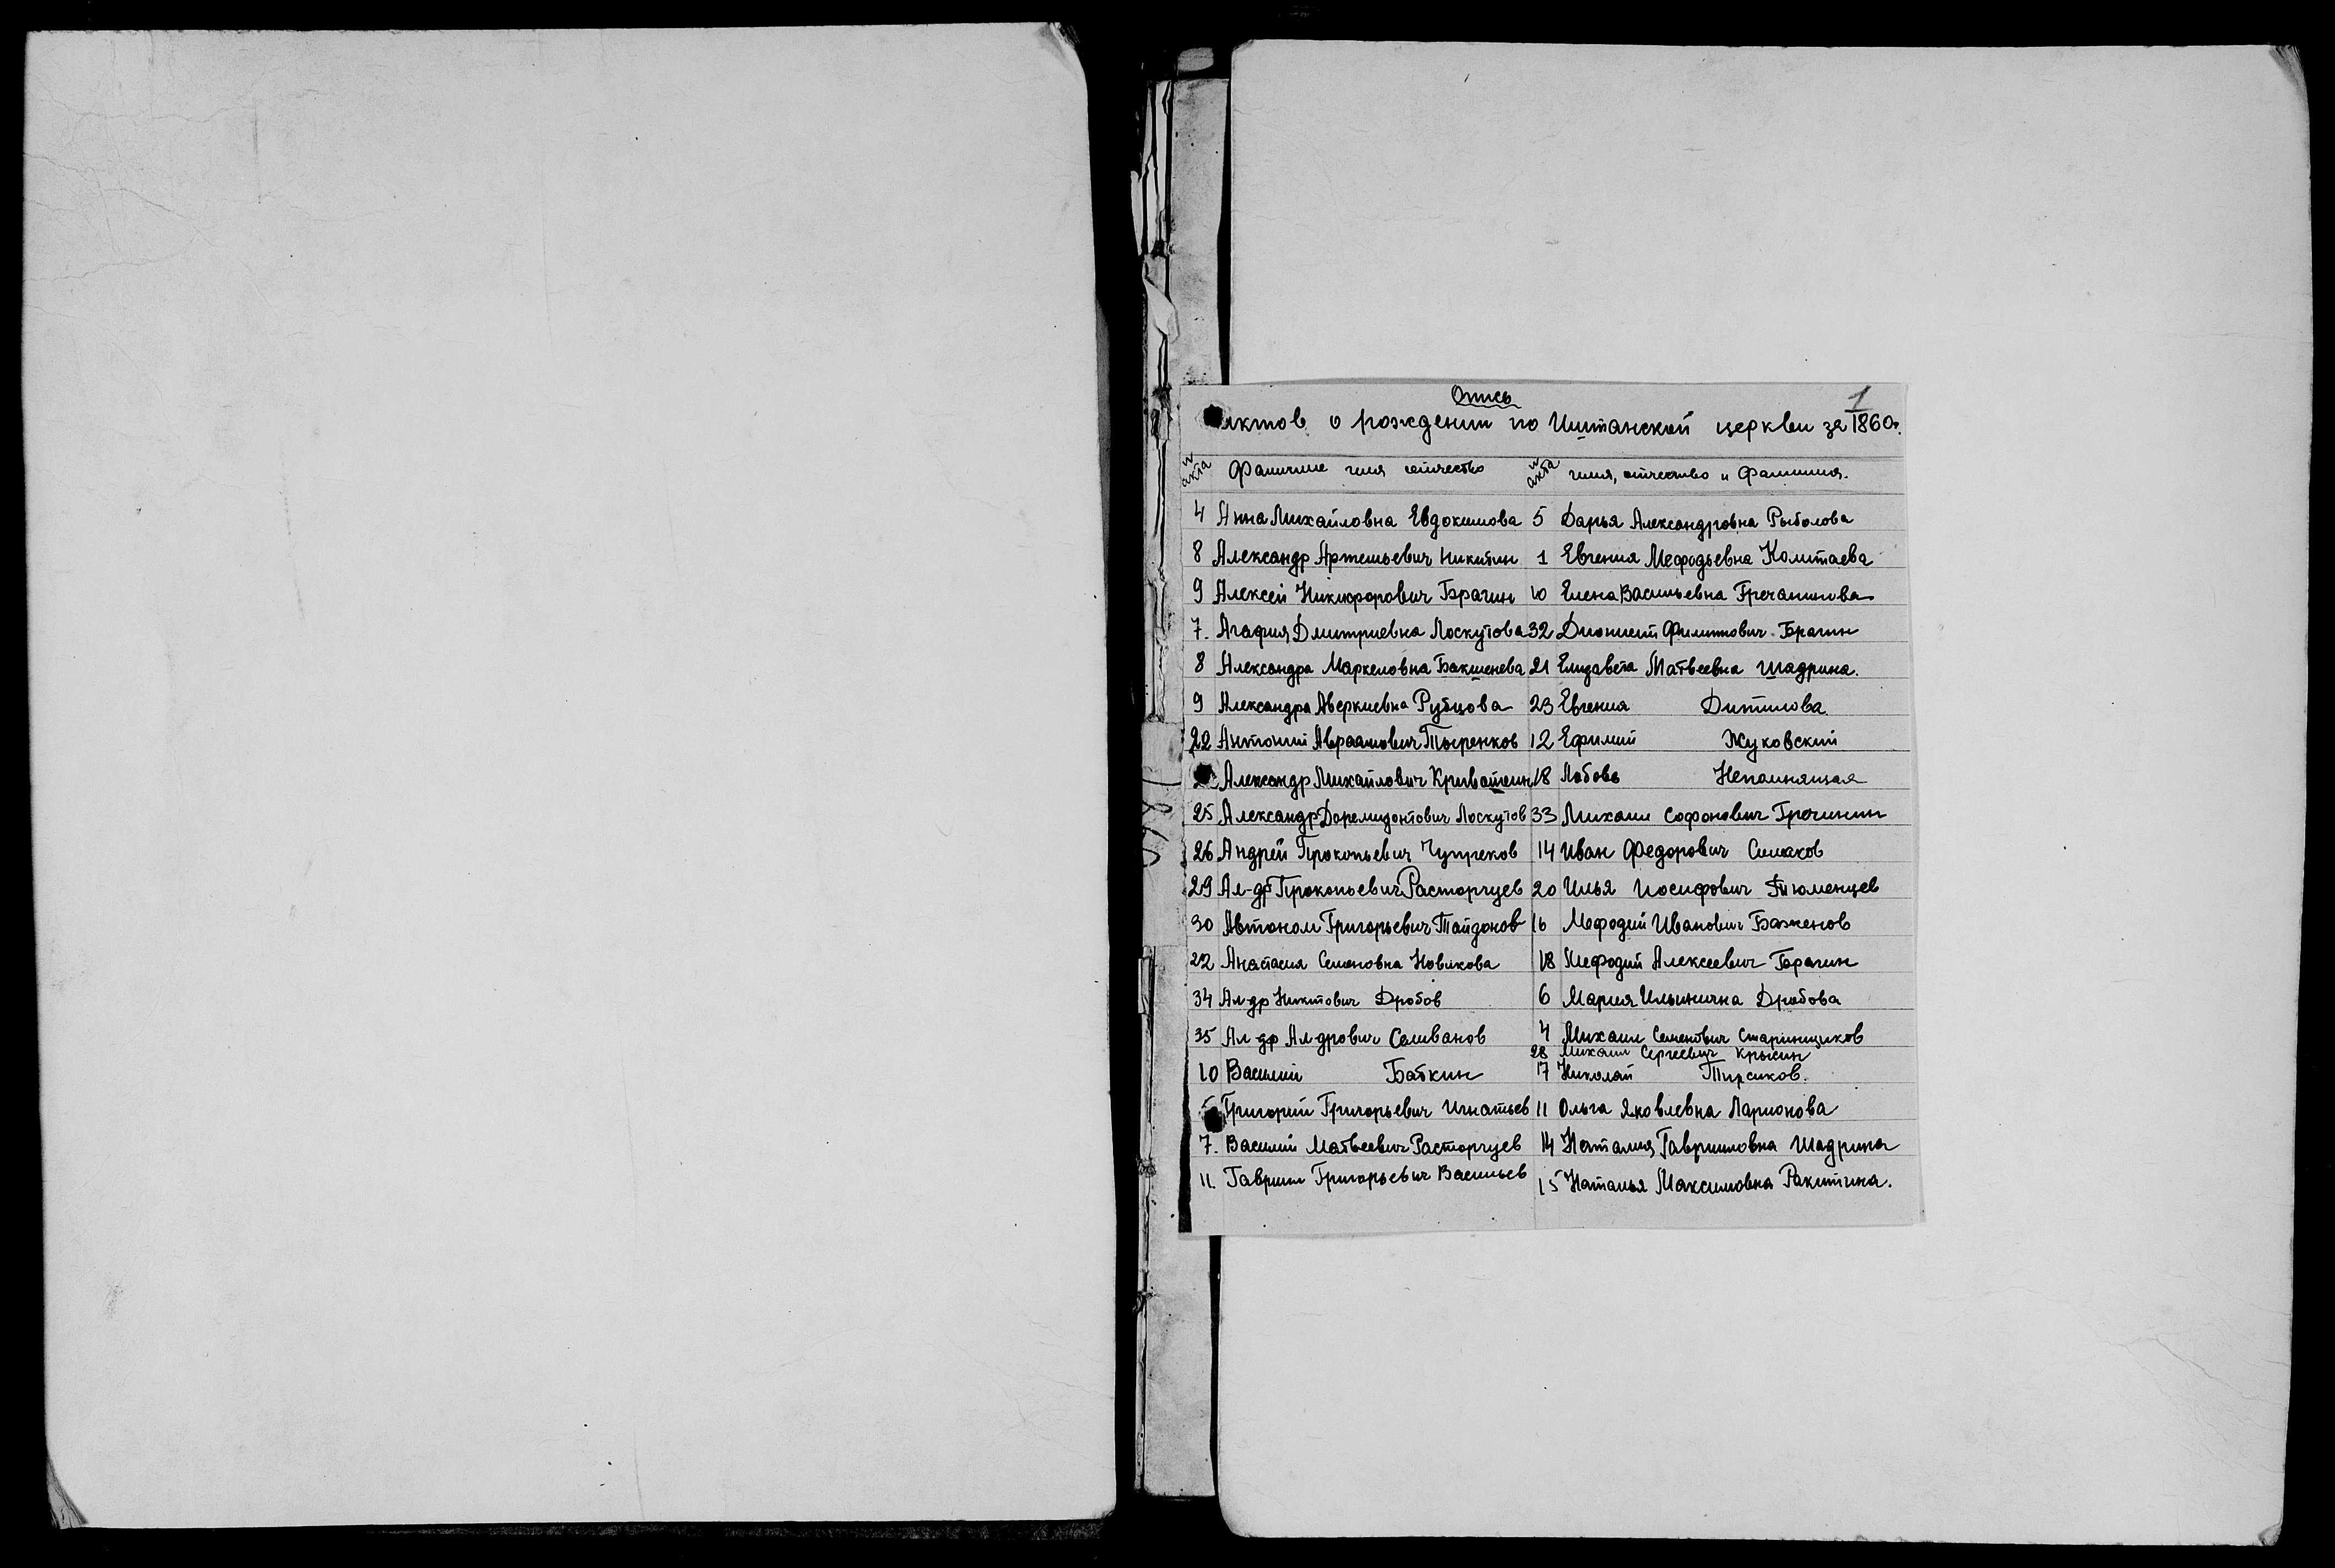 Опись
1
актов о рождении по Иштанской церкви за 1860г.
N акта Фамилие имя отчество N акта имя, отчество и Фамилия.
4 Анна Михайловна Евдокимова 5 Дарья Александровна Рыболова
8 Александр Артемьевич Никитин 1 Евгения Мефодьевна Колтаева
9 Алексей Никифорович Брагин 10 Елена Васильевна Гречанинова
7. Агафия Дмитриевна Лоскутова 32 Дионисий Филиппович Брагин
8 Александра Маркеловна Бакшенева 21 Елизавета Матвеевна Шадрина.
9 Александра Аверкиевна Рубцова 23 Евгения Дитилова.
22 Антоний Авраамович Тыренков 12 Ефимий Жуковский
Александр Михайлович Кривашеин 18 Любовь Непомнящая
25 Александр Доремидонтович Лоскутов 33 Михаил Софонович Гречинин
26 Андрей Прокопьевич Чупреков 14 Иван Федорович Симаков
29 Ал-др Прокопьевич Расторгуев 20 Илья Иосифович Тюменцев
30 Автоном Григорьевич Тайдонов 16 Мефодий Иванович Баженов
22 Анастасия Семеновна Новикова 18 Мефодий Алексеевич Брагин
34 Ал-др Никитович Дробов 6 Мария Ильинична Дробова
35 Ал-др Ал-дрович Селиванов 4 Михаил Семенович Старинщиков
28 Михаил Сергеевич Крысин
10 Василий Бабкин 17 Николай Тирсиков.
Григорий Григорьевич Игнатьев 11 Ольга Яковлевна Ларионова
7. Василий Матвеевич Расторгуев 14 Наталия Гавриловна Шадрина
11. Гаврил Григорьевич Васильев 15 Наталья Максимовна Ракитина.